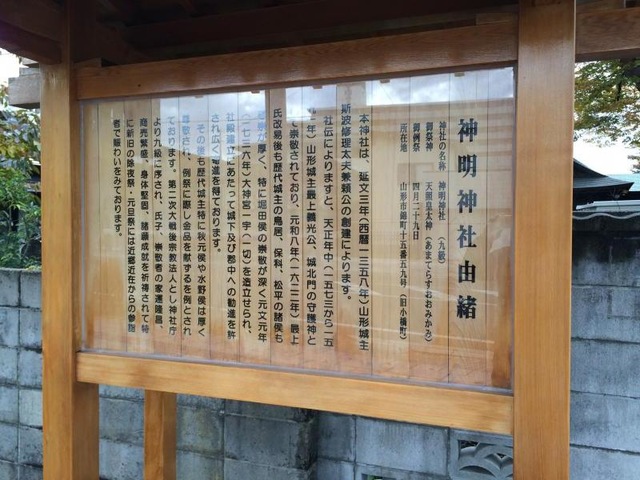 神明神社由緒
神社の名称　神明神社　（九級）
御祭神　天照皇太神（あまてらすおおみかみ）
御例祭　四月二十九日
所在地　山形市錦町十五番五九号（旧小橋町）
本神社は、延文三年（西暦一三五八年）山形城主
斯波修理太夫兼頼公の創建によります。
社伝によりますと、天正年中（一五七三から一五
年）山形城主最上義光公、城北門の守護神と
崇敬されており、元和八年（一六二二年）最上
氏改易後も歴代城主の鳥居、保科、松平の諸侯も
厚く、特に堀田侯の崇敬が深く元文元年
（一七三六年）大神宮一宇（一切）を造立せられ、
社殿建立にあたって城下及び郡中への勧進を許
され広く勧進を得ております。
その後も歴代城主特に秋元侯や水野侯は厚く
尊敬され、例祭に際し金品を献ずるを例とされ
ております。第二次大戦後宗教法人とし神社庁
より九級に序され、氏子、崇敬者の家運隆昌、
商売繁盛、身体堅固、諸願成就を祈祷されて特
に新旧の除夜祭・元旦祭には近郷近在からの参詣
者で賑わいをみております。